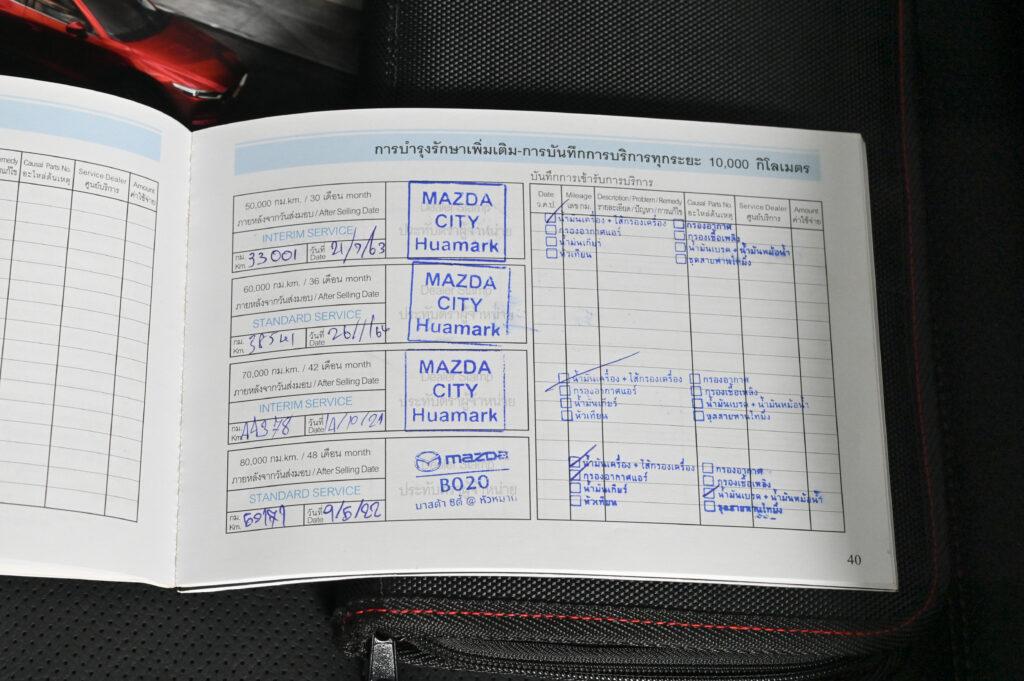 medy
Causal Parts No.
Service Dealer
Amount
ก้ไข
อะไหล่ต้นเหตุ
ศูนย์บริการ
ค่าใช้จ่าย
การบำรุงรักษาเพิ่มเติม-การบันทึกการบริการทุกระยะ 10,000 กิโลเมตร
50,000 กม.km. / 30 เดือน month
ภายหลังจากวันส่งมอบ / After Selling Date
INTERIM SERVICE
กม. Km. 33001 วันที่ Date 21/7/63
MAZDA
CITY
Huamark
60,000 กม.km. / 36 เดือน month
ภายหลังจากวันส่งมอบ / After Selling Date
STANDARD SERVICE
กม. Km. 38541 วันที่ Date 26/1/64
Dealer Stamp
ประทับตราผู้จำหน่าย
MAZDA
CITY
Huamark
70,000 กม.km. / 42 เดือน month
ภายหลังจากวันส่งมอบ / After Selling Date
INTERIM SERVICE
กม. Km. 44978 วันที่ Date 4/10/21
Dealer Stamp
ประทับตราผู้จำหน่าย
MAZDA
CITY
Huamark
80,000 กม.km. / 48 เดือน month
ภายหลังจากวันส่งมอบ / After Selling Date
STANDARD SERVICE
กม. Km. วันที่ Date 9/5/22
ประทับตราผู้จำหน่าย
mazda
B020
มาสด้า ซิตี้ @ หัวหมาก
บันทึกการเข้ารับการบริการ
Date
Mileage
Description / Problem / Remedy
Causal Parts No.
Service Dealer
Amount
ว.ด.ป.
เลข กม.
รายละเอียด / ปัญหา / การแก้ไข
อะไหล่ต้นเหตุ
ศูนย์บริการ
ค่าใช้จ่าย
น้ำมันเครื่อง + ไส้กรองเครื่อง กรองอากาศ
กรองอากาศแอร์ กรองเชื้อเพลิง
น้ำมันเกียร์ น้ำมันเบรค + น้ำมันหม้อน้ำ
หัวเทียน ชุดสายพานไทม์มิ่ง
น้ำมันเครื่อง + ไส้กรองเครื่อง กรองอากาศ
กรองอากาศแอร์ กรองเชื้อเพลิง
น้ำมันเกียร์ น้ำมันเบรค + น้ำมันหม้อน้ำ
หัวเทียน ชุดสายพานไทม์มิ่ง
น้ำมันเครื่อง + ไส้กรองเครื่อง กรองอากาศ
กรองอากาศแอร์ กรองเชื้อเพลิง
น้ำมันเกียร์ น้ำมันเบรค + น้ำมันหม้อน้ำ
หัวเทียน ชุดสายพานไทม์มิ่ง
40